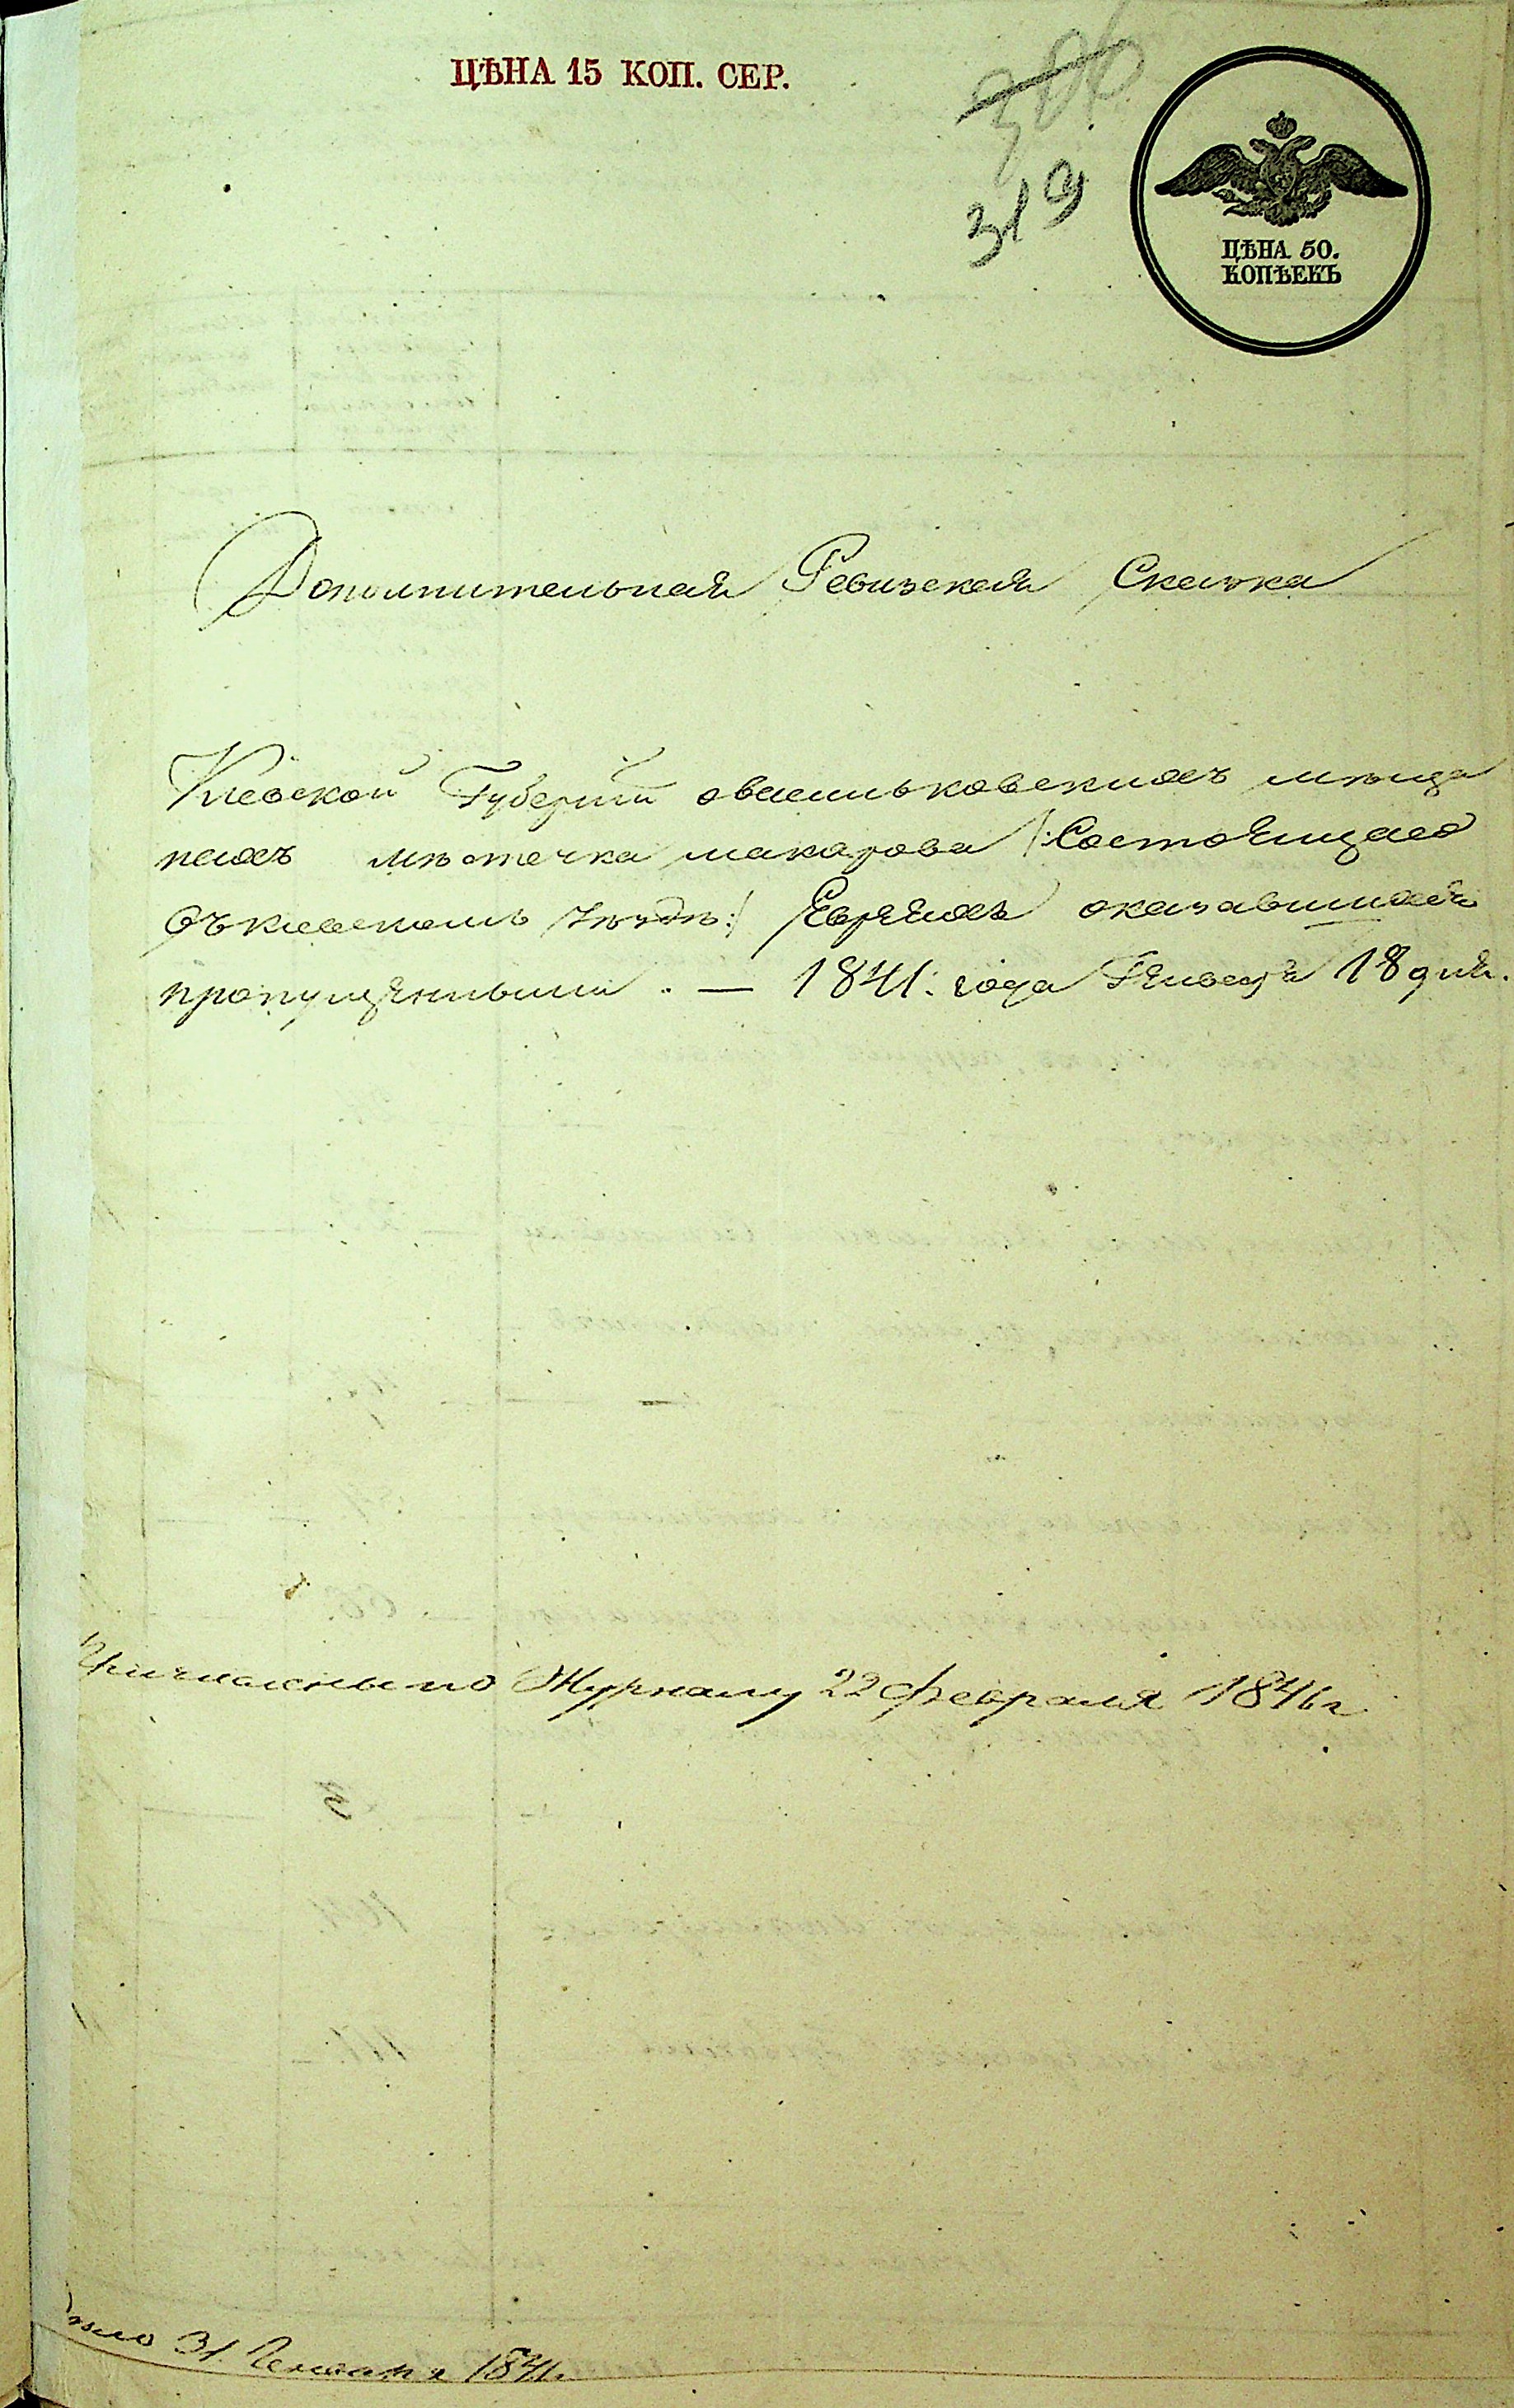 ЦѢНА 15 КОП. СЕР.
306
319
ЦѢНА 50.
КОПѢЕКЪ
Дополнительная Ревизская Сказка
Кіевской Губерніи овасильковскихъ мѣща
нахъ мѣстечка макарова /:Состоящаго
въ кіевскомъ уѣздѣ:/ Евреяхъ оказавшихся
пропущенными. — 1841: года Генваря 18 дня.
Причислены по Журналу 22 февраля 1846 г
31. Генваря 1841.